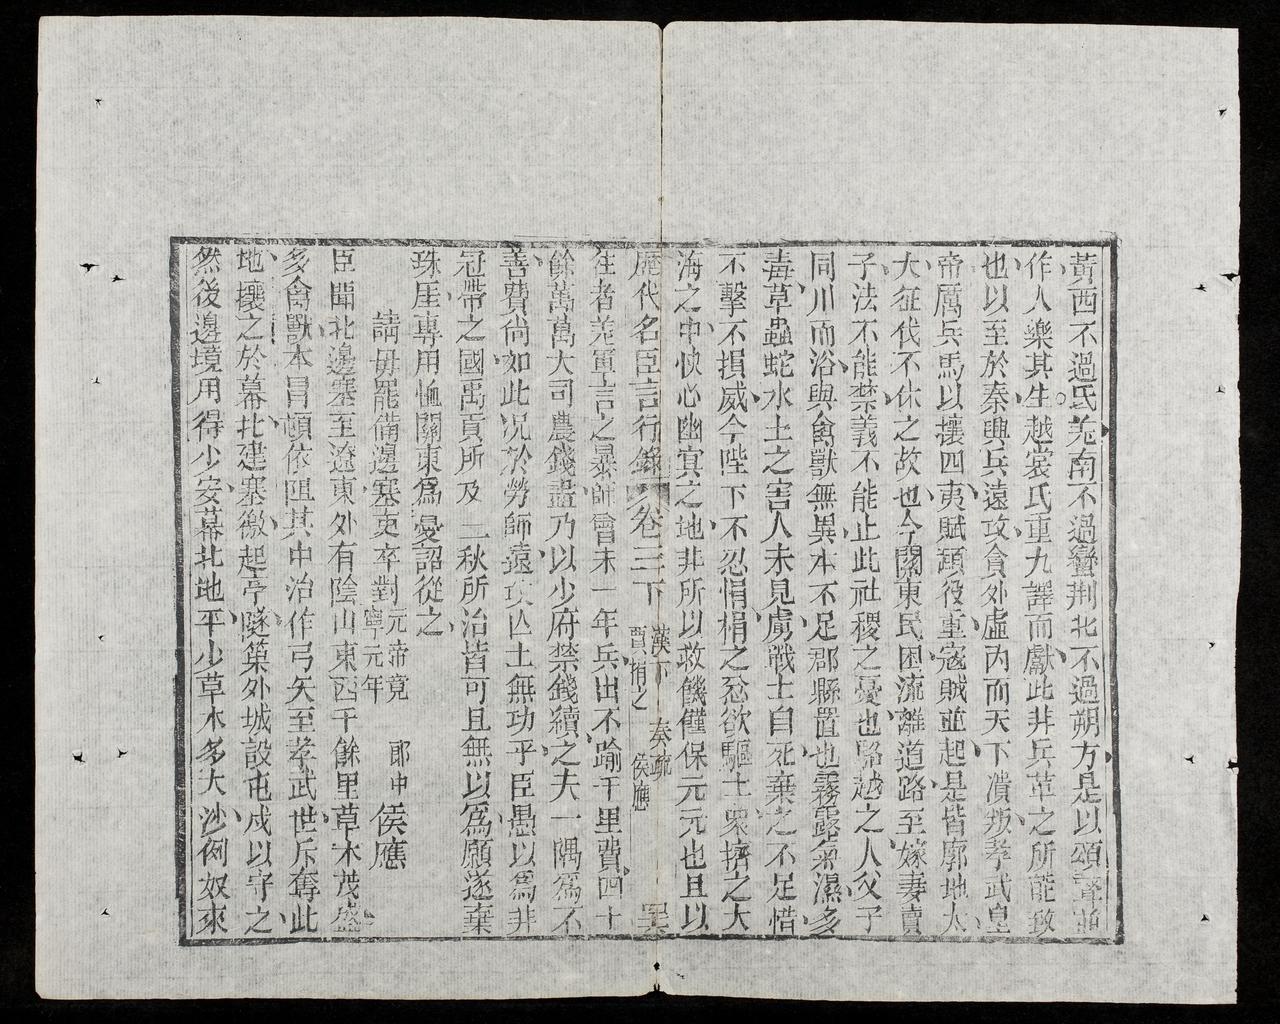 黃西不過氐羌南不過蠻荆北不過朔方是以頌聲並
作人樂其生越裳氏重九譯而獻此非兵革之所能致
也以至於秦興兵遠攻貪外虛內而天下潰叛孝武皇
帝厲兵馬以攘四夷賦頭役重寇賊並起是皆廓地太
大征伐不休之故也今關東民困流離道路至嫁妻賣
子法不能禁義不能止此社稷之憂也駱越之人父子
同川而浴與禽獸無異本不足郡縣置也霧露氣濕多
毒草蟲蛇水土之害人未見虜戰士自死棄之不足惜
不擊不損威今陛下不忍悁悁之忿欲驅士衆擠之大
海之中快心幽冥之地非所以救饑饉保元元也且以
歷代名臣言行錄 卷三下 漢下 賈捐之 奏疏 侯應 
往者羌軍言之暴師曾未一年兵出不踰千里費四十
餘萬萬大司農錢盡乃以少府禁錢續之夫一隅爲不
善費尚如此况於勞師遠攻亾士無功乎臣愚以爲非
冠帶之國禹貢所及 秋所治皆可且無以爲願遂棄
珠厓專用恤關東爲憂詔從之
請毋罷備邊塞吏卒對 元帝竟寧元年 郎中侯應
臣聞北邊塞至遼東外有陰山東西千餘里草木茂盛
多禽獸本冒頓依阻其中治作弓矢至孝武世斥奪此
地攘之於幕北建塞徼起亭隧築外城設屯戍以守之
然後邊境用得少安幕北地平少草木多大沙例奴來